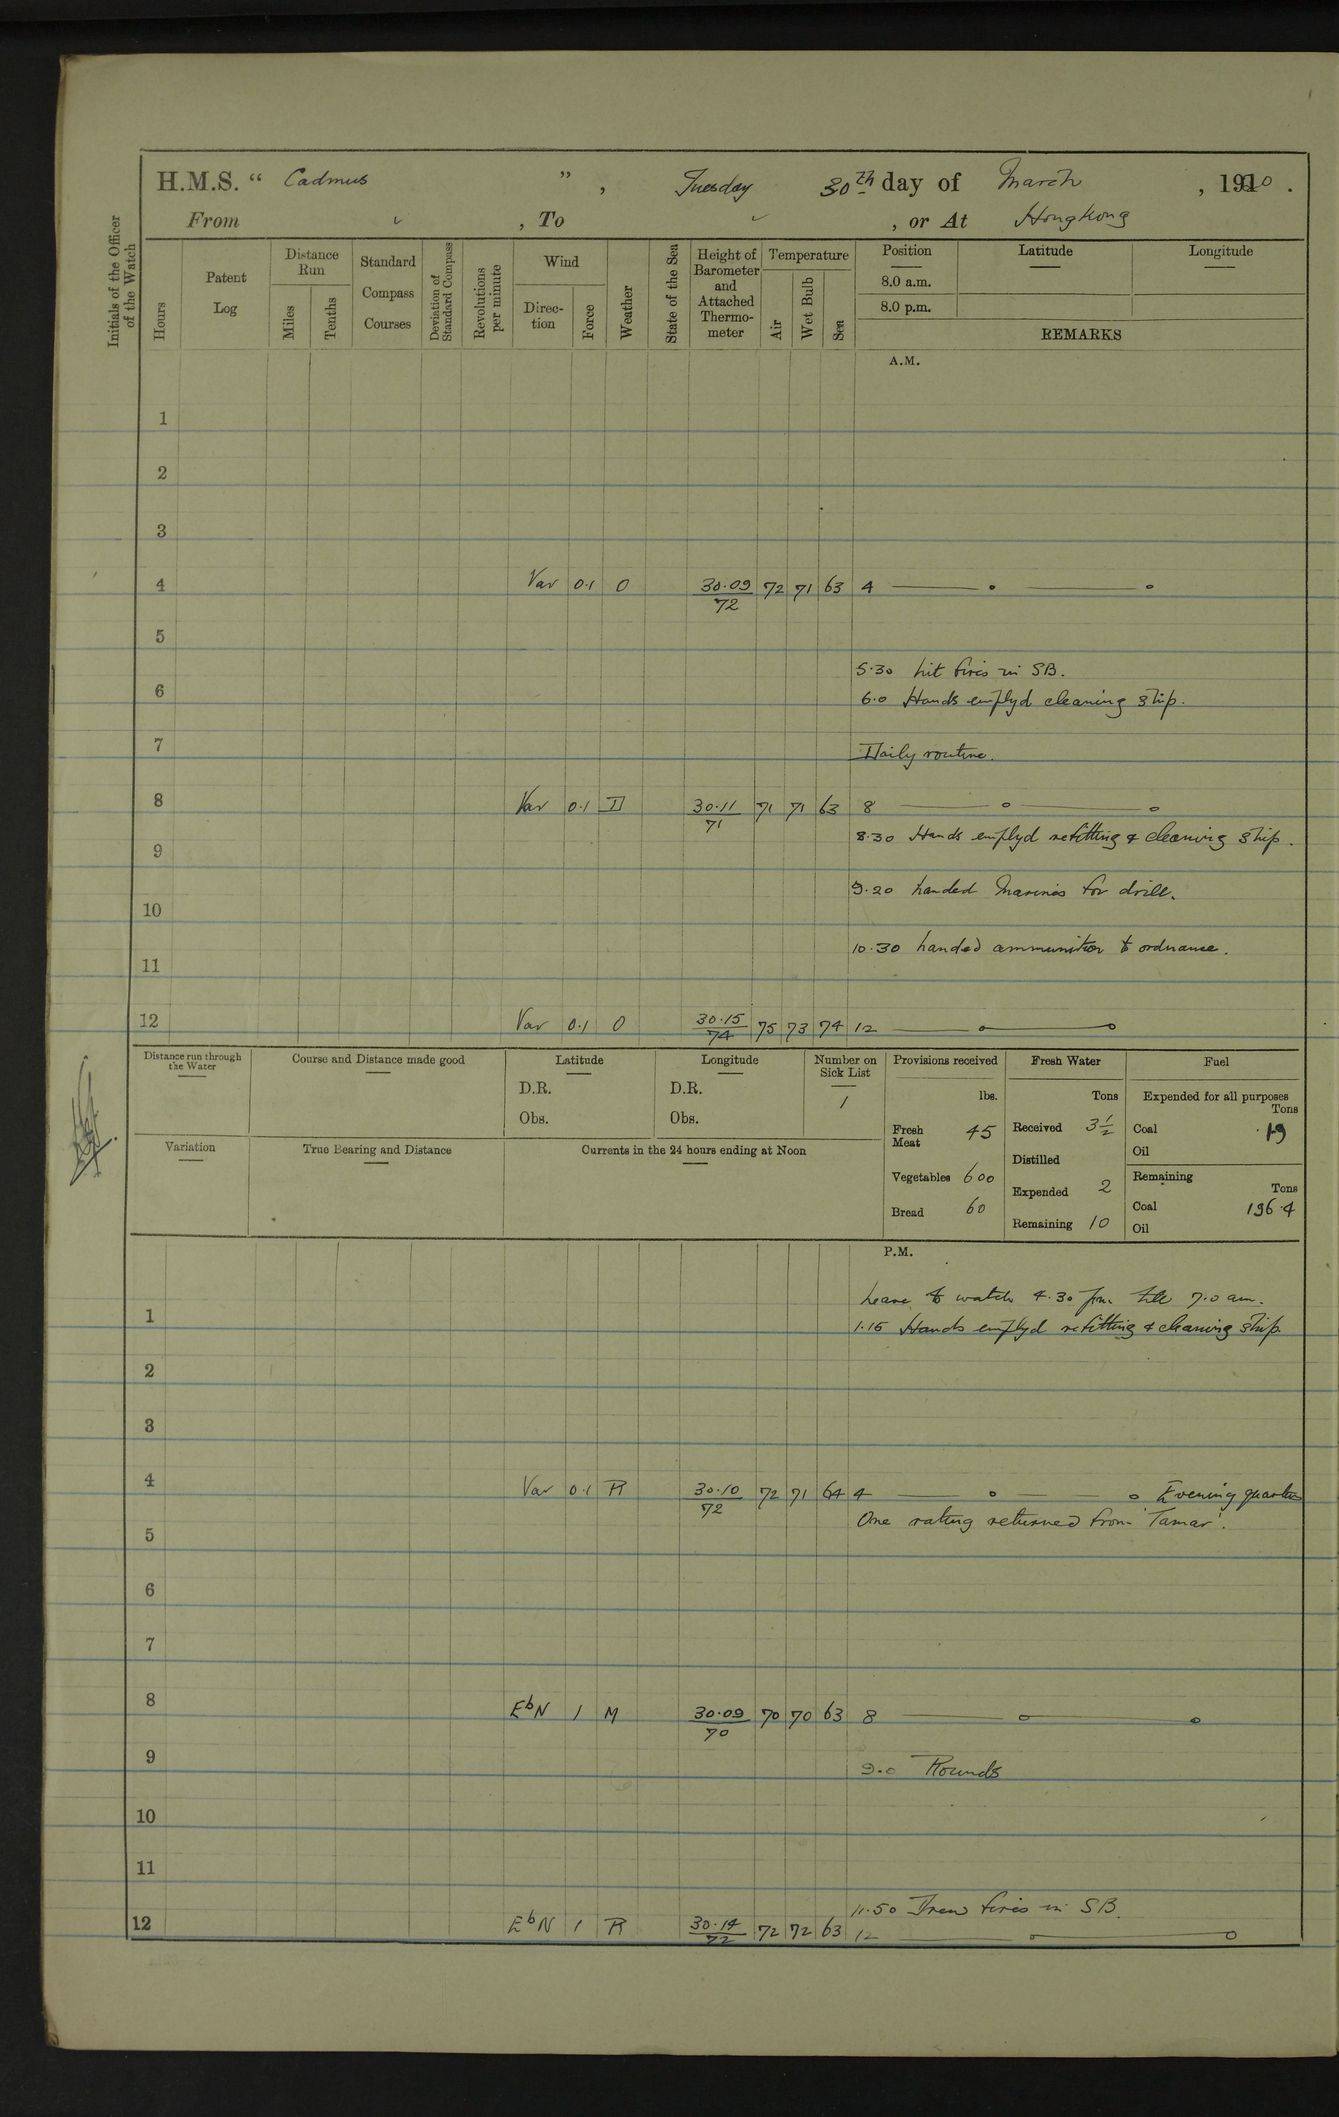 H.M.S. “ Cadmus ” , Tuesday 30th day of March , 1920 .
From , To , or At Hongkong
Initials of the Officer of the Watch
Hours
Patent Log
Distance Run
Miles
Tenths
Standard Compass Courses
Deviation of Standard Compass
Revolutions per minute
Wind
Direction
Force
Weather
State of the Sea
Height of Barometer and Attached Thermometer
Temperature
Air
Wet Bulb
Sea
Position Latitude Longitude
8.0 a.m.
8.0 p.m.
REMARKS
A.M.
1
2
3
4 Var 0.1 O 30.09/72 72 71 63 4
5
5.30 Lit fires in SB.
6
6.0 Hands emplyd cleaning ship.
7
Daily routine.
8 Var 0.1 D 30.11/71 71 71 63 8
8.30 Hands emplyd refitting & cleaning ship.
9
9.20 Landed Marines for drill.
10
10.30 Landed ammunition to ordnance.
11
12 Var 0.1 O 30.15/74 75 73 74 12
Distance run through the Water
Course and Distance made good
Latitude
D.R.
Obs.
Longitude
D.R.
Obs.
Number on Sick List
1
Variation
True Bearing and Distance
Currents in the 24 hours ending at Noon
Provisions received
lbs.
Fresh Meat 45
Vegetables 600
Bread 60
Fresh Water
Tons
Received 3½
Distilled
Expended 2
Remaining 10
Fuel
Expended for all purposes
Tons
Coal 1.9
Oil
Remaining
Tons
Coal 196.4
Oil
P.M.
Leave to watch 4.30 pm. till 7.0 am.
1
1.15 Hands emplyd refitting & cleaning ship.
2
3
4 Var 0.1 R 30.10/72 72 71 64 4 Evening quarters
One rating returned from 'Tamar'.
5
6
7
8 EbN 1 M 30.09/70 70 70 63 8
9
9.0 Rounds
10
11
11.50 Drew fires in SB.
12 EbN 1 R 30.14/72 72 72 63 12